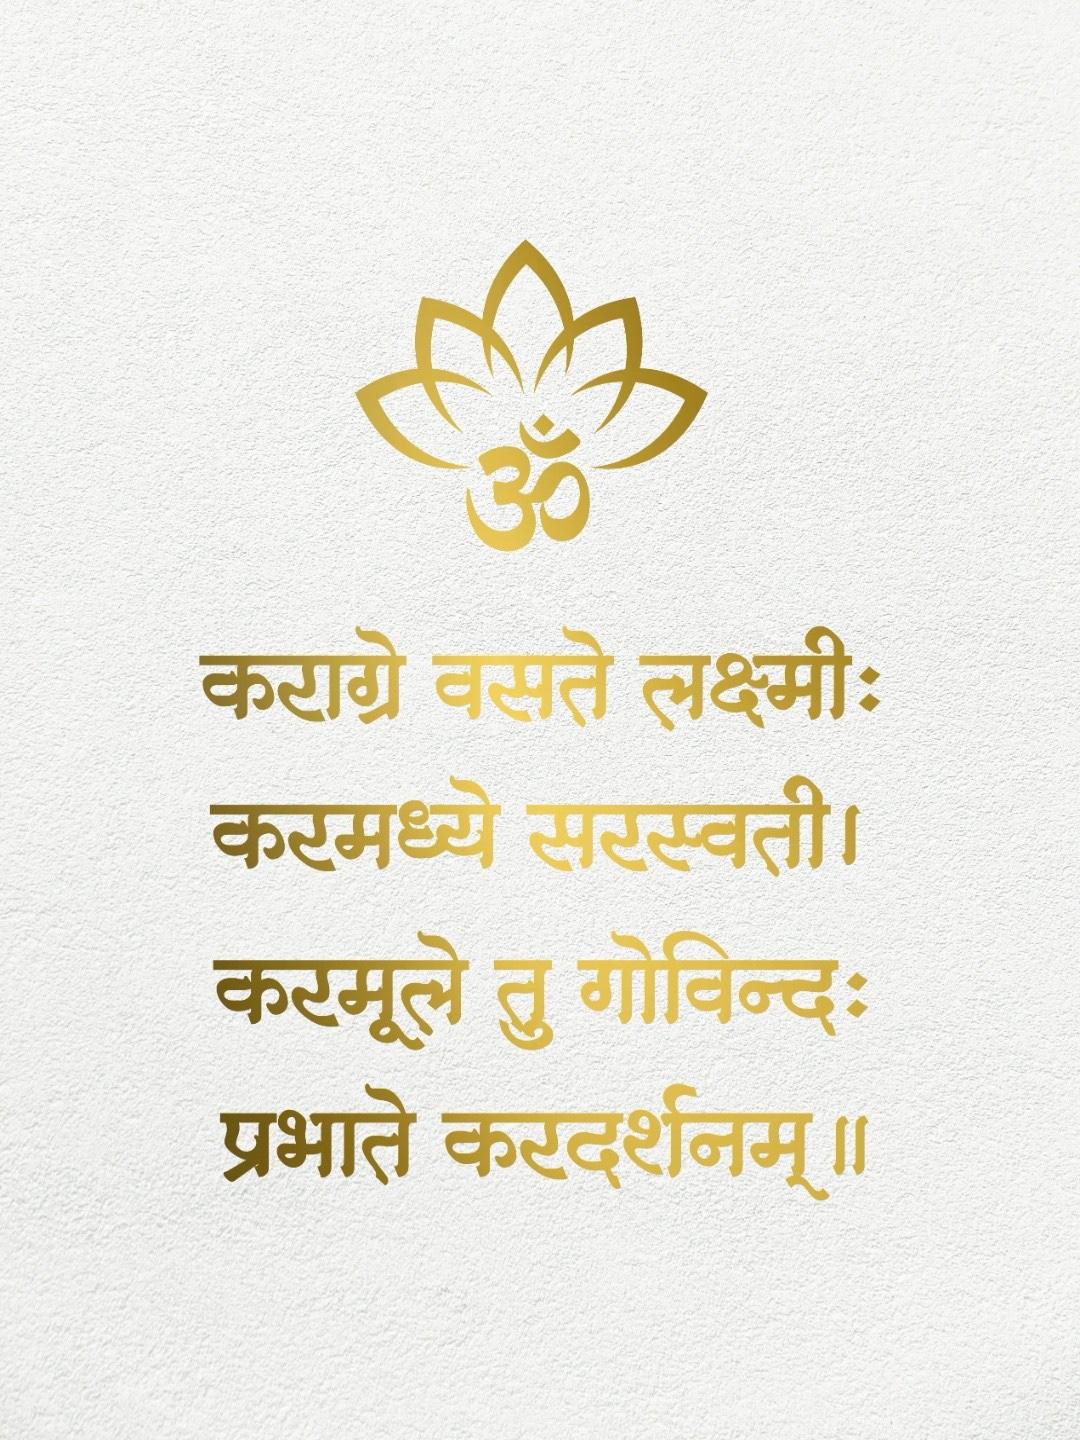 ॐ
कराग्रे वसते लक्ष्मीः
करमध्ये सरस्वती।
करमूले तु गोविन्दः
प्रभाते करदर्शनम्॥